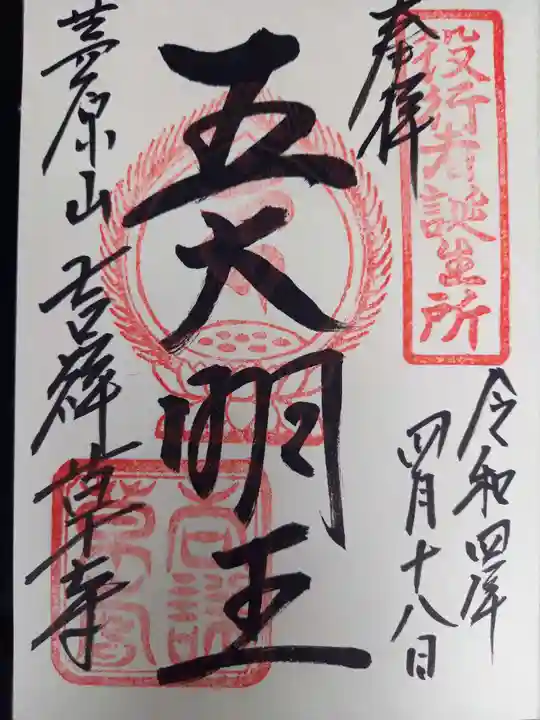 役行者誕生所
奉拝
令和四年
四月十八日
五大明王
茅原山 吉祥草寺
吉祥草寺